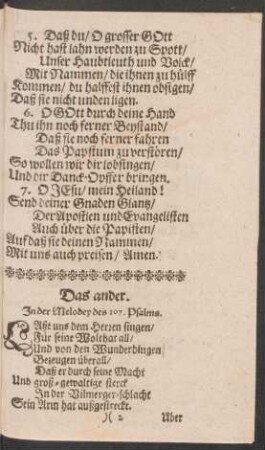 5. Daß du/ O grosser GOtt
Nicht hast lahn werden zu Spott/
Unser Haubtleuth und Volck/
Mit Nammen/ die ihnen zu hülff
Kommen/ du halffest ihnen obsigen/
Daß sie nicht unden ligen.
6. O GOtt durch deine Hand
Thu ihn noch ferner Beystand/
Daß sie noch ferner fahren
Das Papstum zu verstören/
So wollen wir dir lobsingen/
Und dir Danck-Opffer bringen.
7. O JEsu/ mein Heiland!
Send deiner Gnaden Glantz/
Der Apostlen und Evangelisten
Auch über die Papisten/
Auf daß sie deinen Nammen/
Mit uns auch preisen/ Amen.
Das ander.
In der Melodey des 107. Psalms.
LAßt uns dem Herren singen/
Für seine Wolthat all/
Und von den Wunderdingen
Bezeugen überall/
Daß er durch seine Macht
Und groß-gewaltige sterck
In der Vilmerger-schlacht
Sein Arm hat außgestreckt.
)( 2 Uber